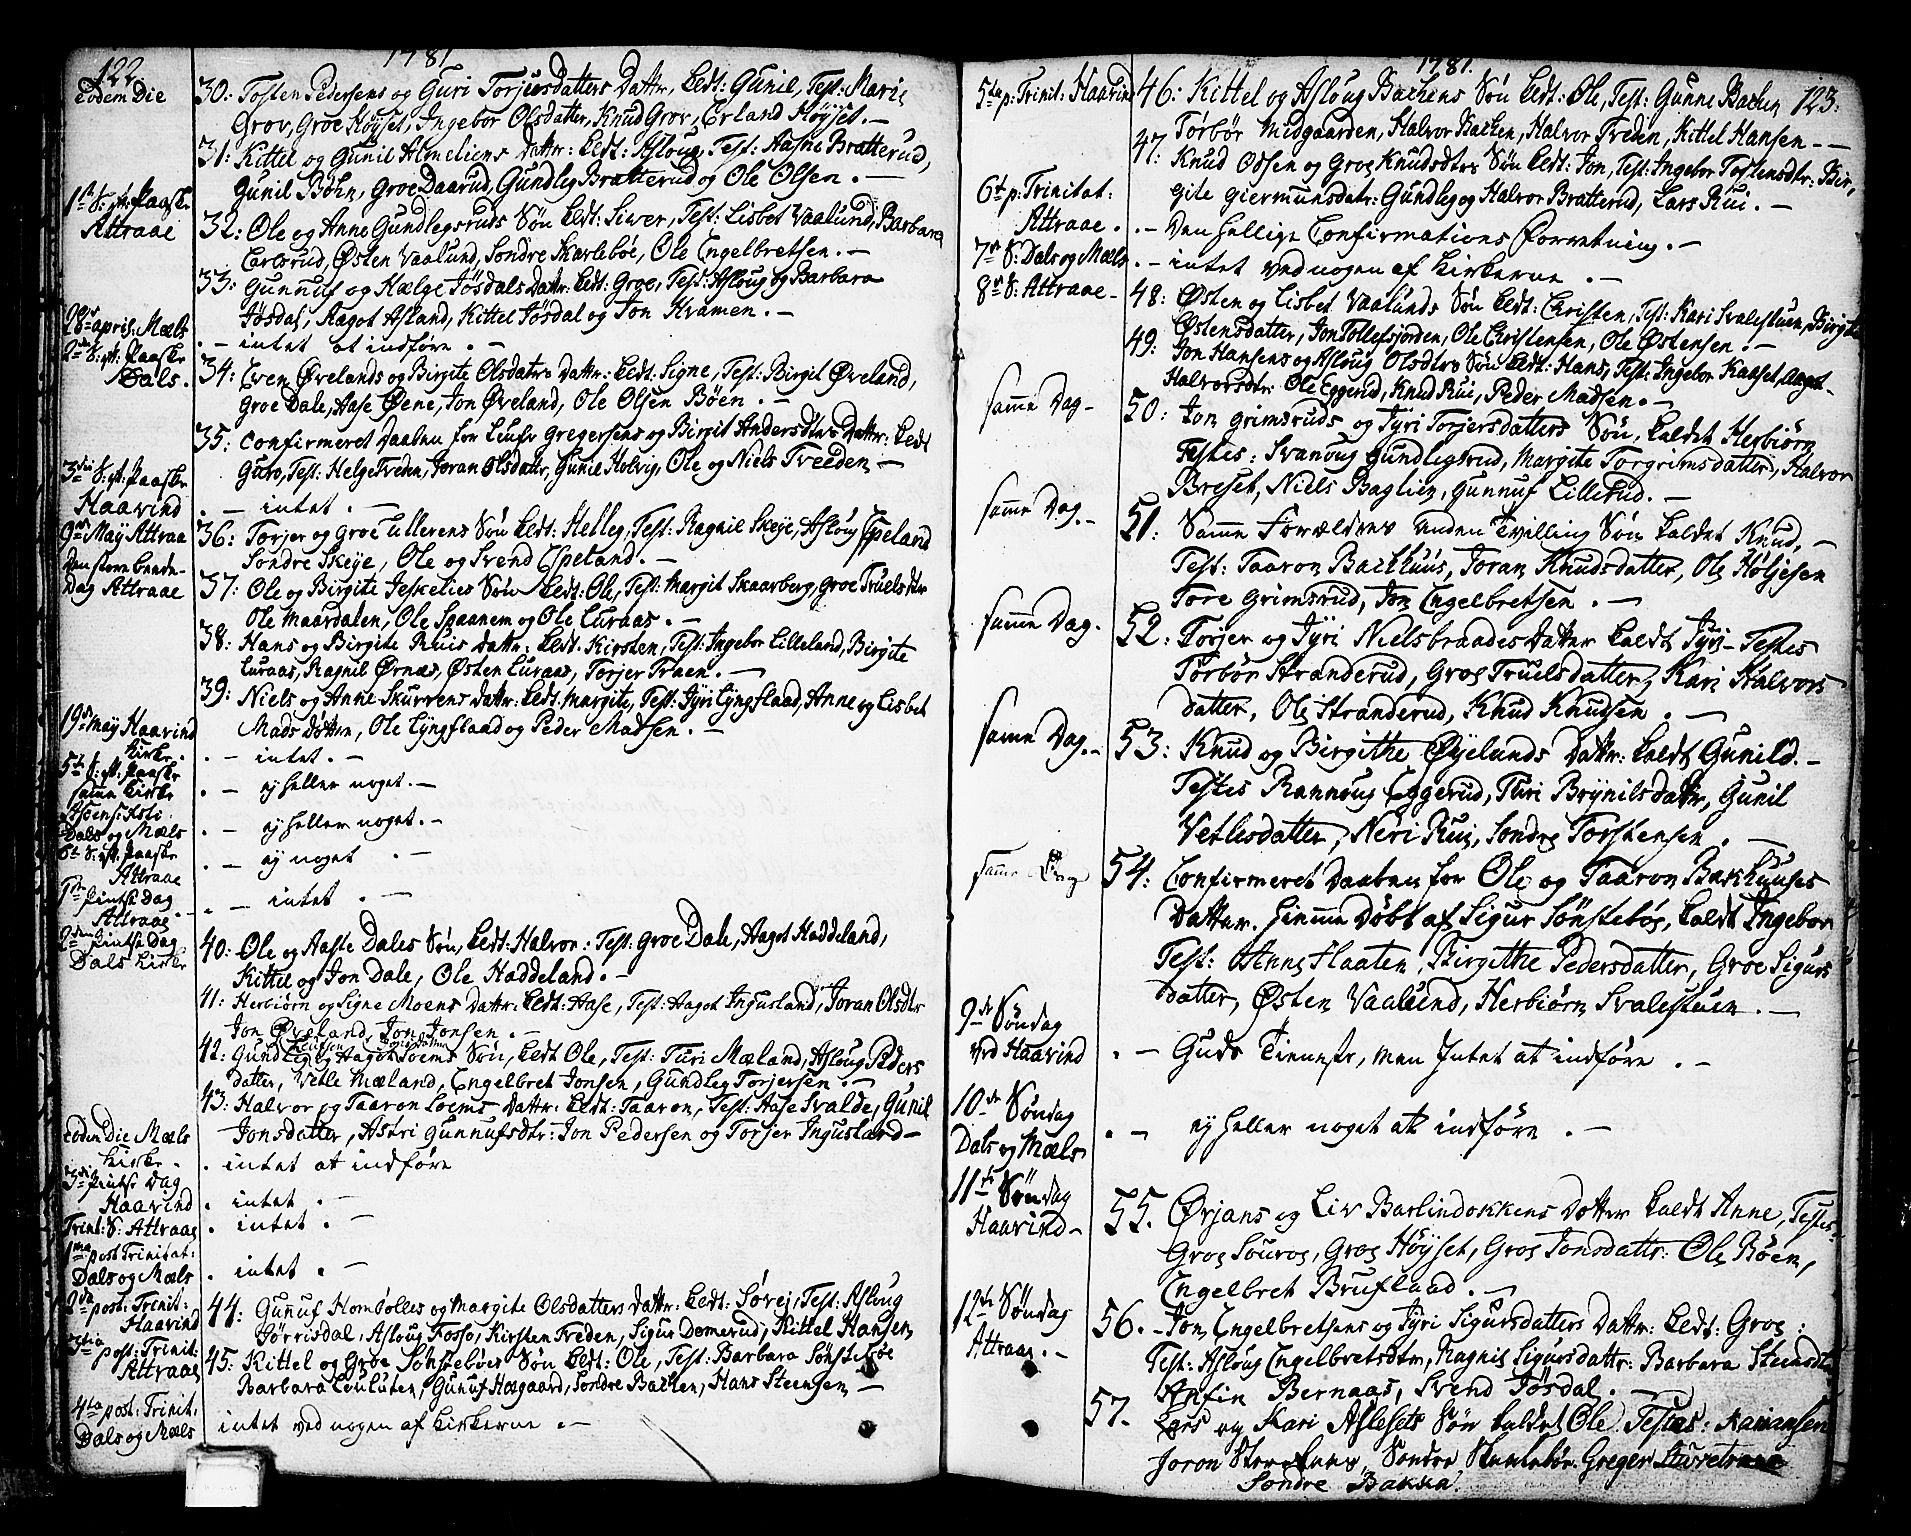 122
1781
Eodem Die
30: Tosten Pedersens og Guri Torjersdatters Dattr, kedt: Gunil, Test: Marie
Grov, Groe Høyset, Ingebor Olsdatter, Knud Grov, Erland Høyset. —
31: Kittel og Gunil Almeliens Dattr: kedt: Asloug, Test: Aaste Bratterud,
Gunil Bøhn, Groe Daarud, Gundleg Bratterud og Ole Olsen. —
1te S: pt: Paaske
Attraae
32: Ole og Anne Gundlegsruds Søn kedt: Siwer, Test: Lisbet Vaalund, Barbara
Carlsrud, Østen Vaalund, Sondre Skarlebøe, Ole Engelbretsen. —
33: Gunnuf og Hælge Jøsdals Dattr: kedt: Groe, Test: Asloug og Barbara
Jøsdal, Aagot Asland, Kittel Jøsdal og Jon Kvamen. —
28de april: Mæls
. — intet at indføre . —
2den S: pt: Paaske
Dals.
34: Even Øvelands og Birgite Olsdatrs Dattr: kedt: Signe, Test: Birgit Øveland,
Groe Dale, Aase Øene, Jon Øveland, Ole Olsen Bøen. —
35: Confirmeret Daaben for Leufr Gregersens og Birgit Andersdtrs Dattr: kedt
Guro, Test: Helge Treden, Joran Olsdattr, Gunil Holvig, Ole og Niels Treeden —
3die S: pt: Paaske
Haavind
. — intet. —
9de May Attraae
den store beede-
Dag Attraae
36: Torjer og Groe Lullerens Søn kedt: Helleg, Test: Ragnil Skeje, Asloug Espeland
Sondre Skeye, Ole og Svend Espeland. —
37: Ole og Birgite Jeskelies Søn kedt: Ole, Test: Margit Skaarberg, Groe Truelsdtr
Ole Maardalen, Ole Spaanem og Ole Luraas. —
38: Hans og Birgite Ruis Dattr: kedt: Kirsten, Test: Ingebor Lilleland, Birgite
Luraas, Ragnil Ørnæs, Østen Luraas, Torjer Traen. —
39: Niels og Anne Skurrens Dattr: kedt: Margite, Test: Jyri Lyngfland, Anne og Lisbet
Mads Døttre, Ole Lyngflaad og Peder Madsen. —
19de May Haavind
Kirke.
. — intet. —
5te S: pt: Paaske
samme Kirke
. — ej heller noget. —
Ascens: Xsti
Dals og Mæls
. — ej heller noget. —
6te S: pt: Paaske
Attraae
. — ej noget . —
1ste Pintse Dag
Attraae
. — intet . —
2den Pintse Dag
Dals Kirke
40: Ole og Aaste Dales Søn, kedt: Halvor: Test: Groe Dale, Aagot Haddeland,
Kittel og Jon Dale, Ole Haddeland. —
41: Herbiørn og Signe Moens Dattr: kedt: Aase, Test: Aagot Ingusland, Joran Olsdtr
Jon Øveland, Jon Jonsen. —
42: Gundleg og Aagot Loems Søn, kedt Ole, Test: Turi Mæland, Asloug Peders
datter, Vetle Mæland, Engelbret Jonsen, Gundleg Torjersen. —
43: Halvor og Taaron Loems Dattr: kedt: Taaron, Test: Aase Svalde, Gunil
Jonsdatter, Astri Gunnufsdtr: Jon Pedersen og Torjer Ingusland —
Eodem Die Mæls
Kirke.
. intet at indføre
3die Pintse Dag
Haavind
. intet . —
Trint: S: Attraae
. intet . —
1ma post Trinitat:
Dals og Mæls
. intet . —
2da post: Trinit:
Haavind
44: Gunuf Homdølles og Margite Olsdatters Dattr: kedt: Søvej, Test: Asloug
Jørrisdal, Asloug Fosso, Kirsten Treden, Sigur Domerud, Kittel Hansen
3tia post: Trinit:
Attraae
45: Kittel og Groe Sønstebøes Søn kedt: Ole, Test: Barbara Sønstebøe
Barbara Louluten, Gunuf Haagaard, Sondre Backen, Hans Steensen —
4ta post: Trinit:
Dals og Mæls
intet ved nogen af Kirkerne . —
1781.
123:
5ta p: Trinit: Haavind
46: Kittel og Asloug Backens Søn kedt: Ole, Test: Gunne Backen
Torbør Midgaarden, Halvor Backen, Halvor Treden, Kittel Hansen — —
47: Knud Odsen og Groe Knudsdtrs Søn kedt: Jon, Test: Ingebor Tostensdtr: Bir,
gite Giermunsdatr: Gundleg og Halvor Bratterud, Lars Rui. —
6te p: Trinitat:
Attraae.
. — Den hellige Confirmations Forretning. —
7de S: Dals og Mæls
. — intet ved nogen af Kirkerne . —
8de S: Attraae —
48: Østen og Lisbet Vaalunds Søn kedt: Christen, Test: Kari Svalestuen, Birgite
Østensdatter, Jon Tollefsjorden, Ole Christensen, Ole Østensen. —
49: Jon Hansens og Asloug Olsdtrs Søn kedt: Hans, Test: Ingebor Kaaset, Aagot
Halvorsdtr: Ole Eggerud, Knud Rui, Peder Madsen. —
samme Dag —
50: Jon Grimsruds og Jyri Torjersdatters Søn, kaldet Herbiørn
Testes: Svanoug Gundlegsrud, Margite Torgrimsdatter, Halvor
Breset, Niels Baglien, Gunnuf Lillerud. —
samme Dag. —
51: Samme Forældres anden Tvilling Søn kaldet Knud, —
Test: Taaron Backhuus, Joran Knudsdatter, Ole Høljesen
Tore Grimsrud, Jon Engelbretsen . —
samme Dag.
52: Torjer og Jyri Nielsbraades Dattr kaldt Jyri — Testes
Torbør Stranderud, Groe Truelsdatter, Kari Halvors
datter, Ole Stranderud, Knud Knutsen . —
samme Dag. —
53: Knud og Birgithe Øyelands Dattr: kaldt Gunild. —
Testes Rannoug Eggerud, Turi Brynilsdattr, Gunil
Vetlesdatter, Neri Rui, Sondre Torstensen . —
samme Dag
54: Confirmeret Daaben for Ole og Taaron Bakhuuses
Datter, hiemme Døbt af Sigur Sønstebøe, kaldt Ingebor
Test: Anne Haaten, Birgithe Pedersdatter, Groe Sigurs
datter, Østen Vaalund, Herbiørn Svalestuen . —
9de Søndag
ved Haavind
. — Guds Tieneste, men Intet at indføre . —
10de Søndag
Dals og Mæls
. — ej heller noget at indføre . —
11te Søndag
Haavind —
55. Ørjans og Liv Barlindokkens Datter kaldt Anne, Testes
Groe Souroe, Groe Høyset, Groe Jonsdattr: Ole Bøen,
Engelbret Brufladd . —
12te Søndag
Attraae. —
56. — Jon Engelbretsens og Jyri Sigursdatters Dattr: kedt: Groe:
Test: Asloug Engelbretsdtr, Ragnil Sigursdattr: Barbara Steensdtr
Anfin Bernaas, Svend Jøsdal. —
57. Lars og Kari Aslesets Søn kaldet Ole Testes: Kari Hansen
Joron Storestuen, Sondre Skarlebøe, Greger Sturetraae
Sondre Bakka.